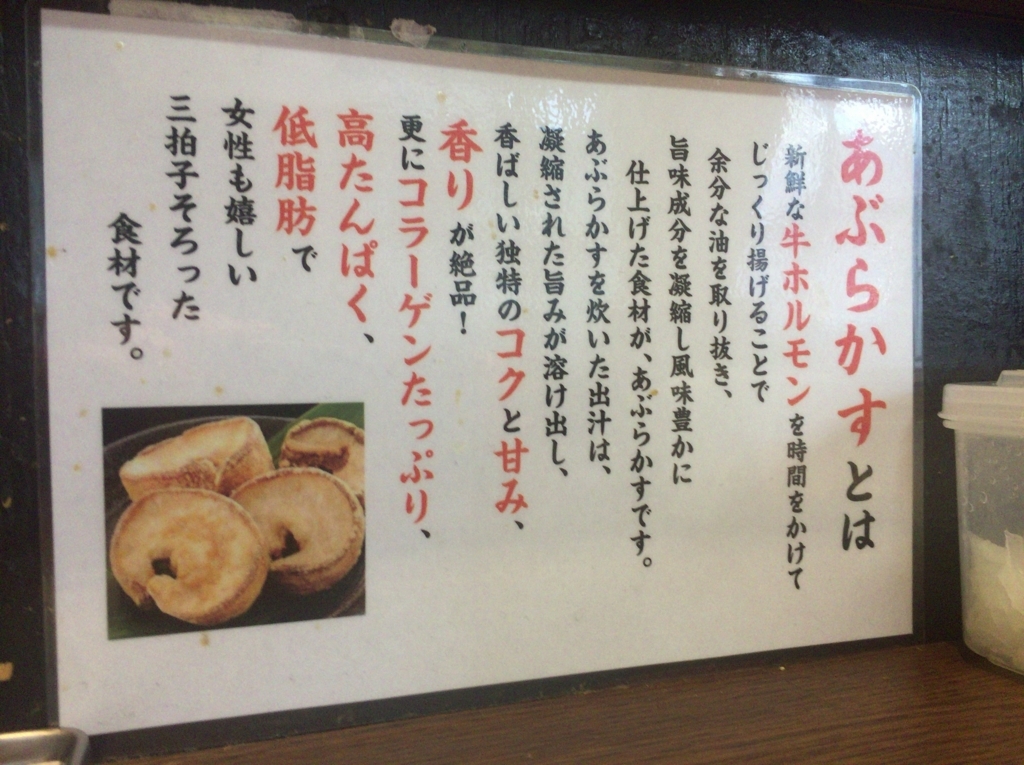 あぶらかすとは
新鮮な牛ホルモンを時間をかけて
じっくり揚げることで
余分な油を取り抜き、
旨味成分を凝縮し風味豊かに
仕上げた食材が、あぶらかすです。
あぶらかすを炊いた出汁は、
凝縮された旨みが溶け出し、
香ばしい独特のコクと甘み、
香りが絶品！
更にコラーゲンたっぷり、
高たんぱく、
低脂肪で
女性も嬉しい
三拍子そろった
食材です。